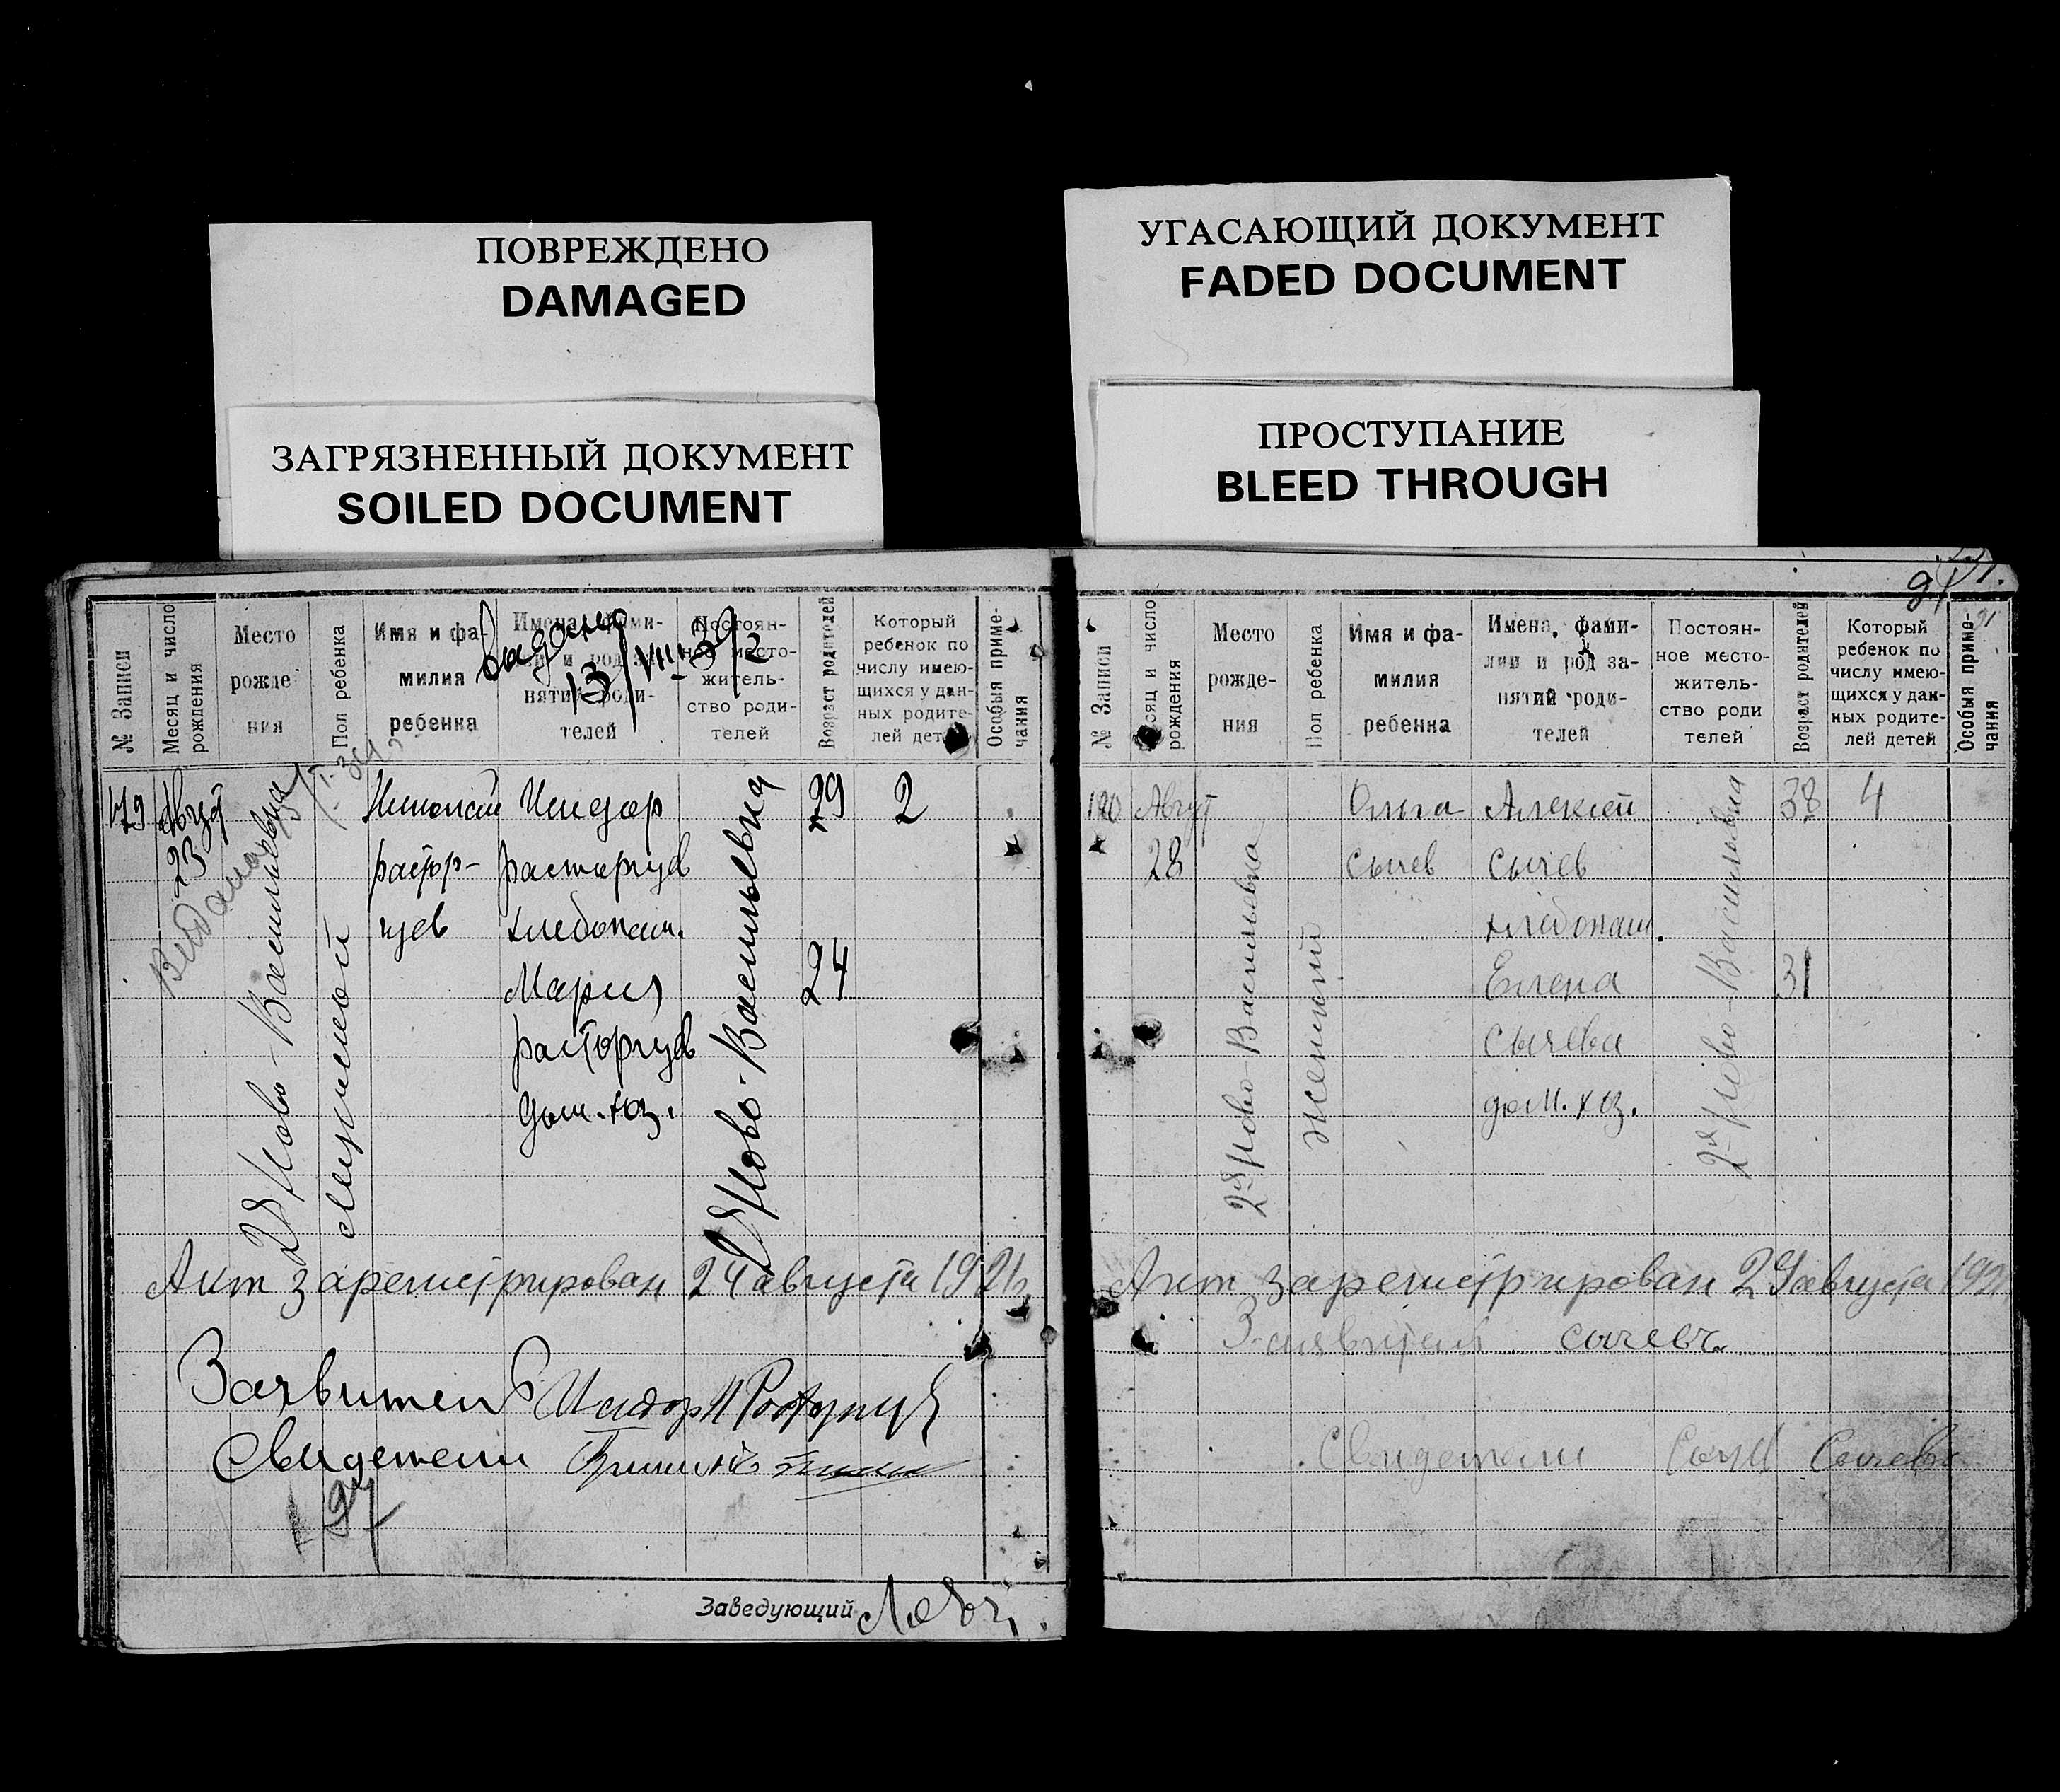 ПОВРЕЖДЕНО
DAMAGED
ЗАГРЯЗНЕННЫЙ ДОКУМЕНТ
SOILED DOCUMENT
УГАСАЮЩИЙ ДОКУМЕНТ
FADED DOCUMENT
ПРОСТУПАНИЕ
BLEED THROUGH
№ Записи
Месяц и число рождения
Место рожде-
ния
Пол ребенка
Имя и фа-
милия
ребенка
Имена, фами-
лии и род за-
нятий роди-
телей
Постоян-
ное место-
житель-
ство роди-
телей
Возраст родителей
Который
ребенок по
числу имею-
щихся у дан-
ных родите-
лей детей
Особыя приме-
чания
13/VIII-39
179
Август
23
2я Ново-Васильевка
Мужской
Растор-
гуев
Исидор
Расторгуев
хлебопаш.
Мария
Расторгуев
дом. хоз.
2я Ново-Васильевка
29
24
2
Акт зарегистрирован 24 августа 1921
Заявитель
Свидетели
197
Заведующий
91
№ Записи
Месяц и число рождения
Место
рожде-
ния
Пол ребенка
Имя и фа-
милия
ребенка
Имена, фами-
лии и род за-
нятий роди-
телей
Постоян-
ное место-
житель-
ство роди
телей
Возраст родителей
Который
ребенок по
числу имею-
щихся у дан-
ных родите-
лей детей
Особыя приме-
чания
Август
28
2я Ново-Васильевка
Женский
Ольга
Сычев
Алексей
Сычев
хлебопаш.
Елена
Сычева
дом. хоз.
2я Ново-Васильевка
38
31
4
Акт зарегистрирован 29 августа 1921
Заявитель Сычевъ
Свидетели